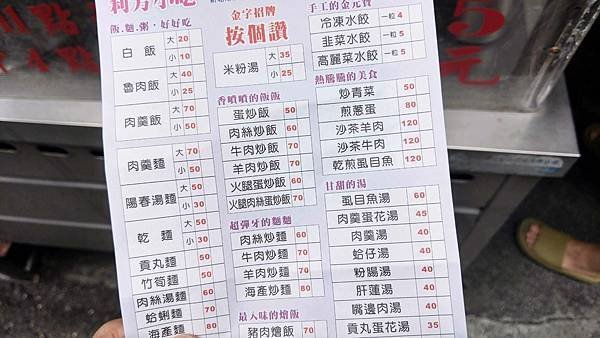 利方小吃
飯.麵.粥,好好吃
白飯 大 20
小 10
魯肉飯 大 40
小 25
肉羹飯 大 70
小 50
肉羹麵 大 70
小 50
陽春湯麵 大 50
小 30
乾麵 大 50
小 30
貢丸麵 50
竹筍麵 50
肉絲湯麵 60
蛤蜊麵 70
海產麵 80
金字招牌
按個讚
米粉湯 大 35
小 25
香噴噴的飯飯
蛋炒飯 50
肉絲炒飯 60
牛肉炒飯 70
羊肉炒飯 70
火腿蛋炒飯 60
火腿肉絲蛋炒飯 70
超彈牙的麵麵
肉絲炒麵 60
牛肉炒麵 70
羊肉炒麵 70
海產炒麵 80
最入味的燴飯
豬肉燴飯 70
手工的金元寶
冷凍水餃 一粒 4
韭菜水餃 一粒 5
高麗菜水餃 一粒 5
熱騰騰的美食
炒青菜 50
煎蔥蛋 80
沙茶羊肉 120
沙茶牛肉 120
乾煎虱目魚 120
甘甜的湯
虱目魚湯 60
肉羹蛋花湯 45
肉羹湯 40
蛤仔湯 40
粉腸湯 40
肝蓮湯 40
嘴邊肉湯 40
貢丸蛋花湯 35